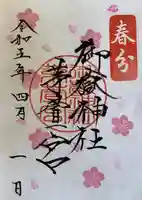 春分
御嶽神社
茅萱宮
令和五年四月一日